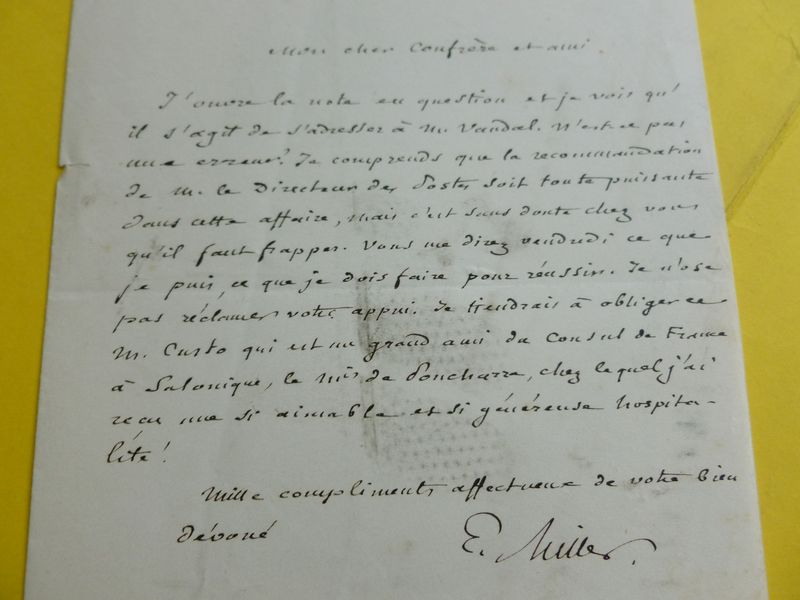 Mon cher Confrère et ami
J'ouvre la note en question et je vois qu'
il s'agit de s'adresser à M. Vandal. N'est-ce pas
une erreur? Je comprends que la recommandation
de M. le Directeur des Postes soit toute puissante
dans cette affaire, mais c'est sans doute chez vous
qu'il faut frapper. Vous me direz vendredi ce que
je puis, ce que je dois faire pour réussir. Je n'ose
pas réclamer votre appui. Je tiendrais à obliger ce
M. Curto qui est un grand ami du Consul de France
à Salonique, le Mis de Poncharra, chez lequel j'ai
reçu une si aimable et si généreuse hospita-
lité!
Mille compliments affectueux de votre bien
dévoué
E. Miller.